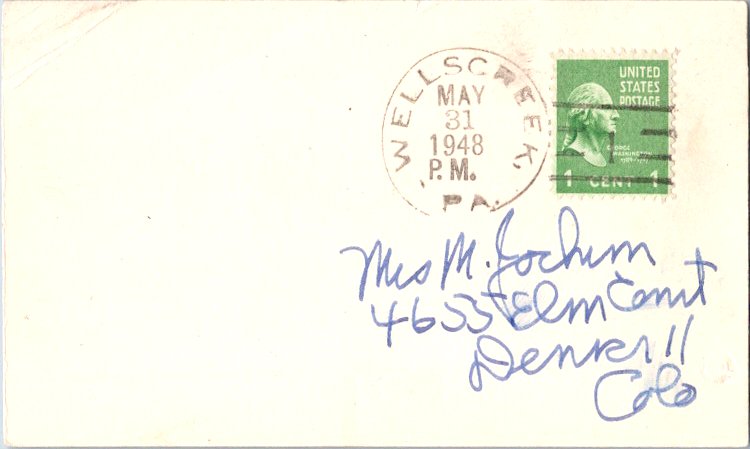 WELLSCREEK,
MAY
31
1948
P.M.
PA.
UNITED
STATES
POSTAGE
GEORGE
WASHINGTON
1789-1797
1
1 CENT 1
Mrs M. Jochum
4655 Elm Court
Denver 11
Colo